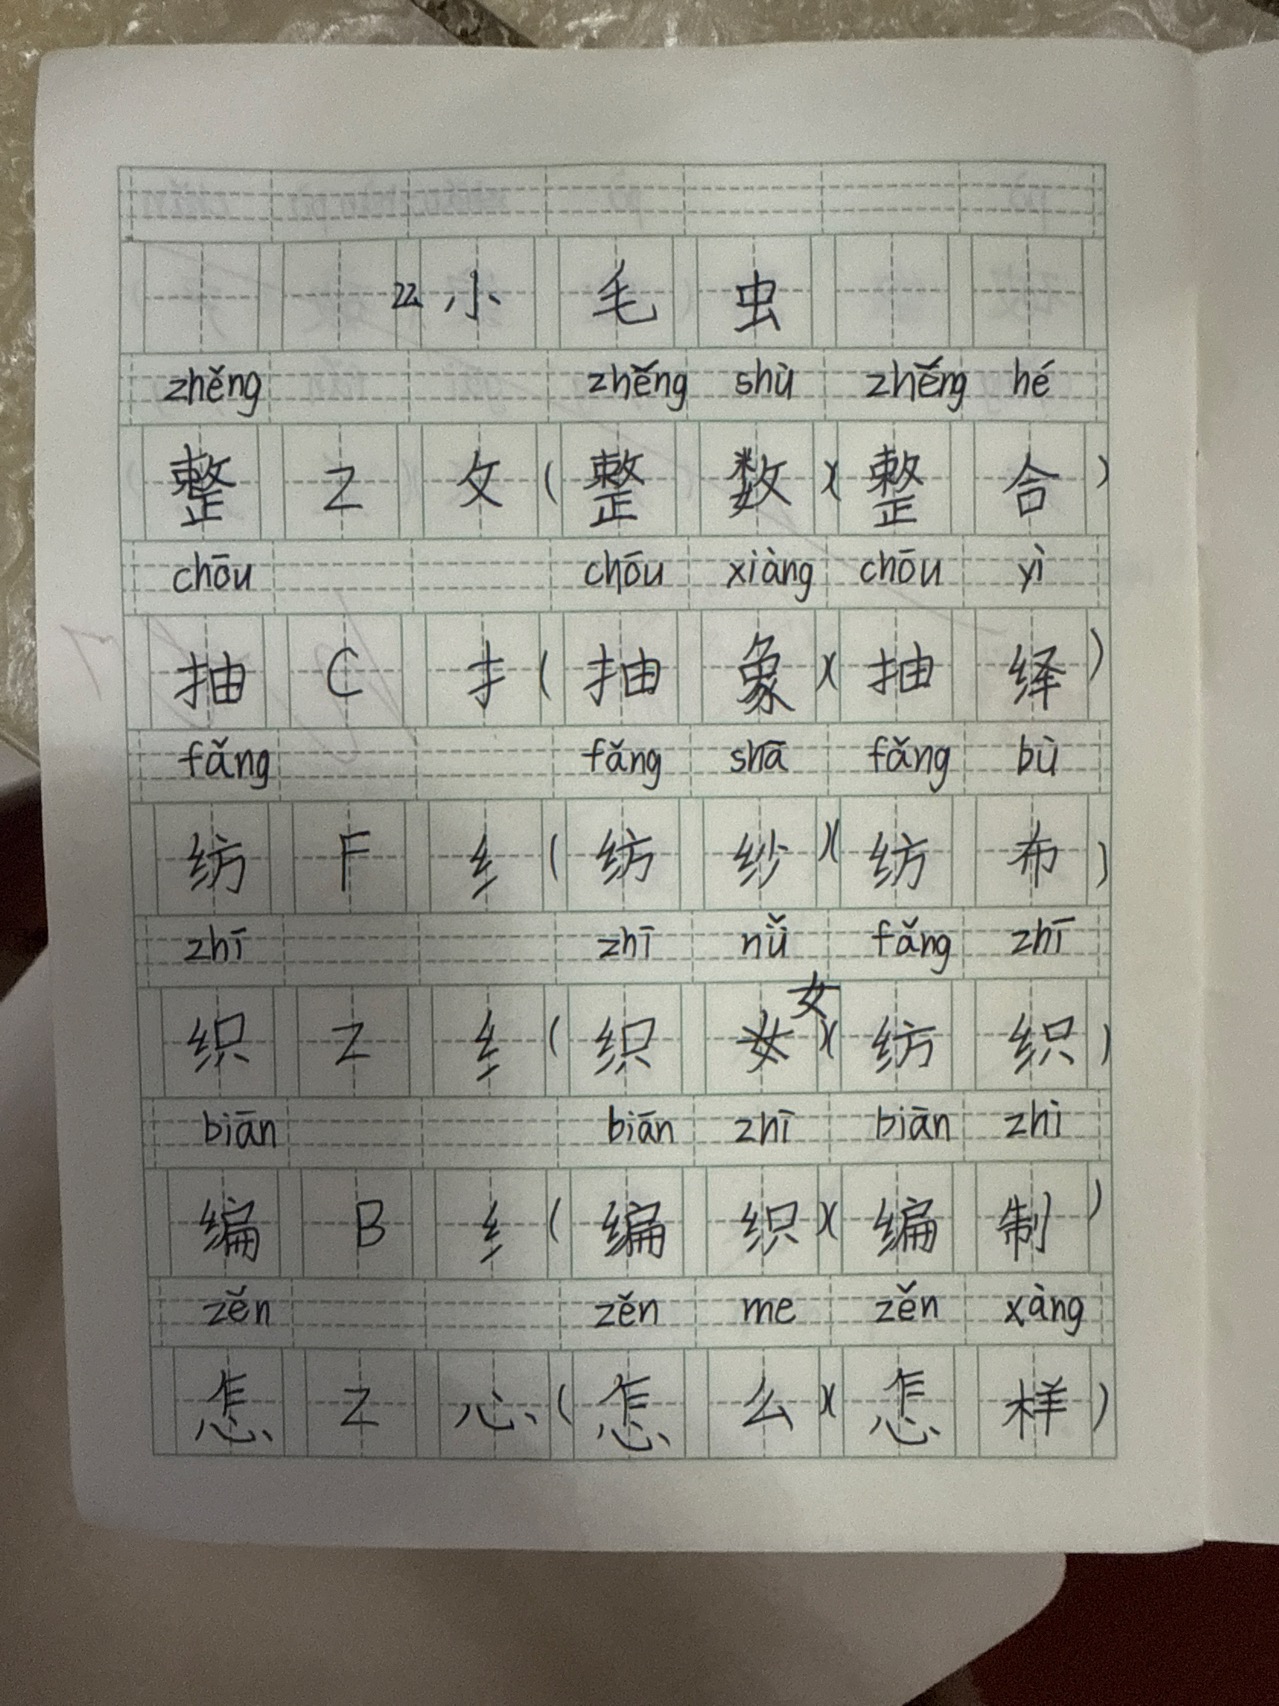 22 小毛虫
zhěng zhěng shù zhěng hé
整 Z 攵 (整数)(整合)
chōu chōu xiàng chōu yì
抽 C 扌 (抽象)(抽绎)
fǎng fǎng shā fǎng bù
纺 F 纟 (纺纱)(纺布)
zhī zhī nǚ fǎng zhī
织 Z 纟 (织女)(纺织)
biān biān zhī biān zhì
编 B 纟 (编织)(编制)
zěn zěn me zěn xàng
怎 Z 心 (怎么)(怎样)